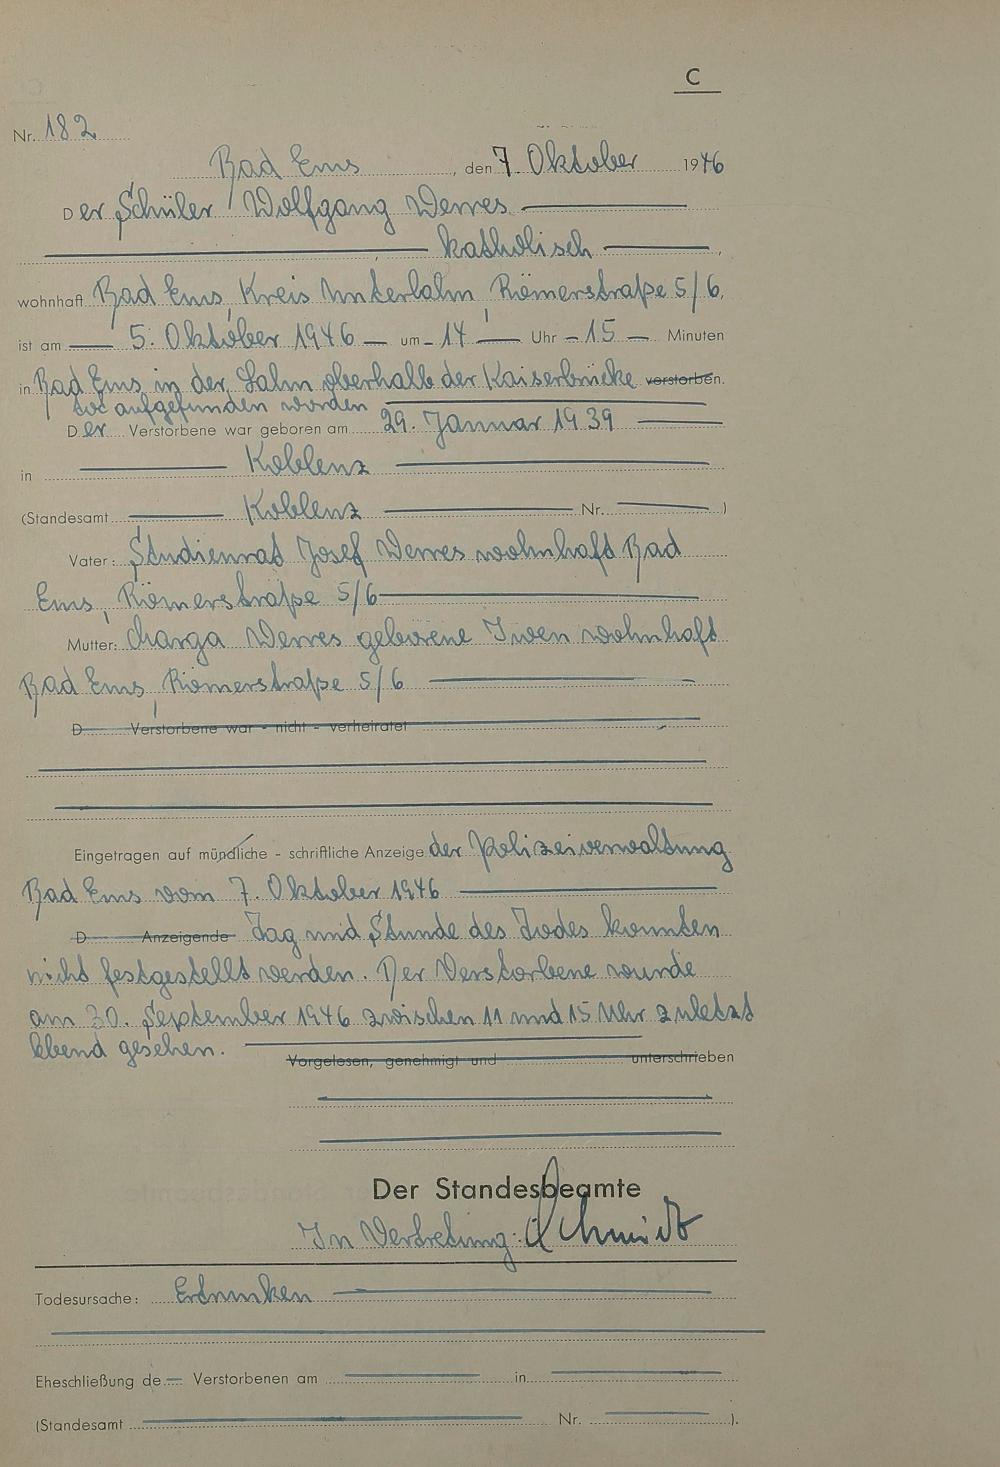 C
Nr. 182
Bad Ems, den 7. Oktober 1946
Der Schüler Wolfgang Werres
katholisch,
wohnhaft Bad Ems, Kreis Unterlahn, Römerstraße 5/6,
ist am 5. Oktober 1946 um 14 Uhr 15 Minuten
in Bad Ems in der Lahn oberhalb der Kaiserbrücke verstorben.
tot aufgefunden worden
Der Verstorbene war geboren am 29. Januar 1939
in Koblenz
(Standesamt Koblenz Nr. )
Vater: Studienrat Josef Werres wohnhaft Bad
Ems, Römerstraße 5/6
Mutter: Marga Werres geborene Iven wohnhaft
Bad Ems, Römerstraße 5/6
D Verstorbene war - nicht - verheiratet
Eingetragen auf mündliche - schriftliche Anzeige der Polizeiverwaltung
Bad Ems vom 7. Oktober 1946
D Anzeigende Tag und Stunde des Todes konnten
nicht festgestellt werden. Der Verstorbene wurde
am 30. September 1946 zwischen 11 und 15 Uhr zuletzt
lebend gesehen.
Vorgelesen, genehmigt und unterschrieben
Der Standesbeamte
In Vertretung: Schmidt
Todesursache: Ertrunken
Eheschließung de Verstorbenen am in
(Standesamt Nr. ).